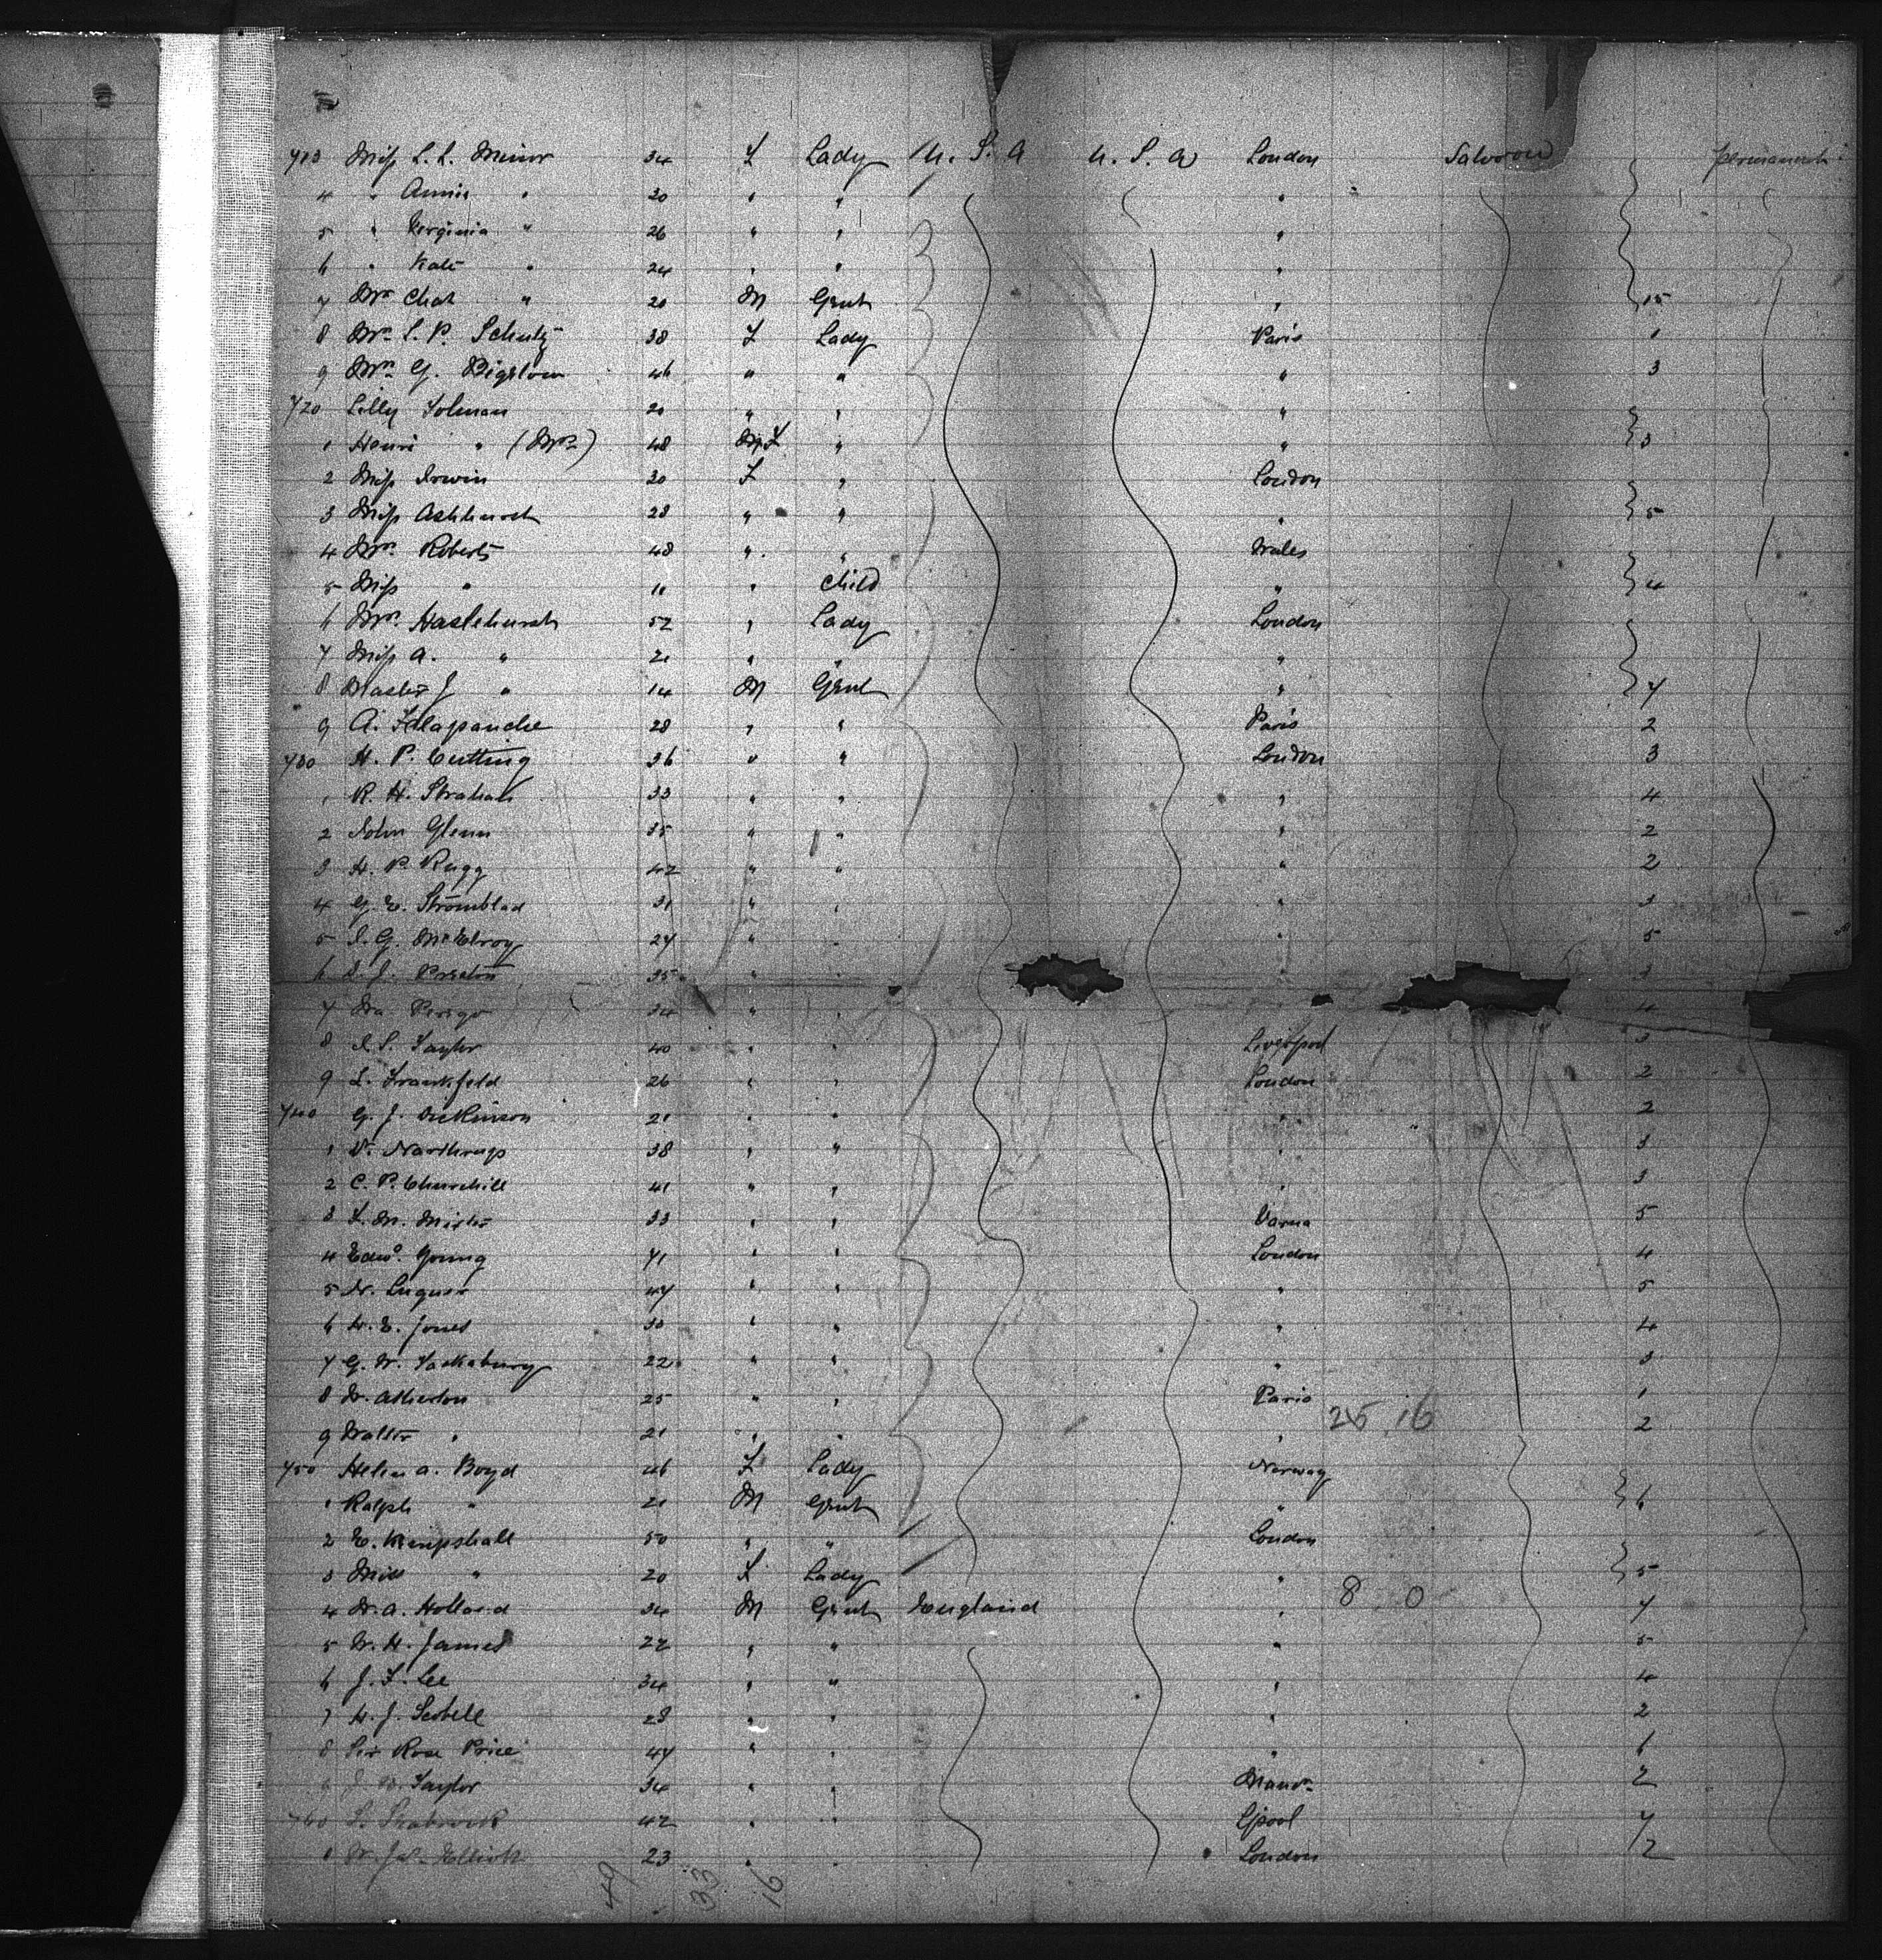 713 Miss L. L. Minor 34 F Lady U. S. A U. S. A London Saloon permanent
4 " Annie " 20 " " "
5 " Verginia " 26 " " "
6 " Kate " 24 " " "
7 Mr Chas " 20 M Gent " 15
8 Mrs L. P. Schultz 38 F Lady Paris 1
9 Mrs G. Bigelow 46 " " " 3
720 Lilly Tolman 20 " " "
1 Henri " (Mrs) 48 F " " 3
2 Miss Irwin 30 F " London
3 Miss Ashhurst 28 " " " 5
4 Mrs Roberts 48 " " Wales
5 Miss " 11 " Child " 4
6 Mrs Haslehurst 52 " Lady London
7 Miss A. " 21 " " "
8 Master J " 14 M Gent " 7
9 A. 28 " " Paris 2
730 H. P. Cutting 36 " " London 3
1 R. H. Strahan 33 " " " 4
2 John Glenn 35 " " " 2
3 H. P. Rugg 42 " " " 2
4 G. E. Stromblad 31 " " " 3
5 J. G. McElroy 27 " " " 5
6 S. J. Preston 35 " " " 3
7 Perego 34 " " 4
8 J. S. Taylor 40 " " Liverpool 3
9 L. Frankfeld 26 " " London 2
740 G. J. Dickinson 21 " " " 2
1 V. Northrup 38 " " " 3
2 C. P. Churchill 41 " " " 3
3 F. M. 33 " " Varna 5
4 Edwd. Young 71 " " London 4
5 N. Luquer 47 " " " 5
6 H. E. Jones 30 " " " 4
7 G. W. Sackabury 22 " " " 3
8 W. Atherton 25 " " Paris 1
25 16
9 Walter " 21 " " " 2
750 Helen A. Boyd 46 F Lady Norway
1 Ralph " 21 M Gent " 6
2 E. Kempshall 50 " " London
3 Miss " 20 F Lady " 5
8 0
4 W. A. Holland 34 M Gent England " 7
5 W. H. James 22 " " " 5
6 J. F. Lee 34 " " " 4
7 H. J. Scobell 28 " " " 2
8 Sir Rose Price 47 " " " 6
9 Taylor 34 " " Mancr 2
760 S. 42 " " Lpool 7
1 W. Elliott 23 " " London 2
49 33 16